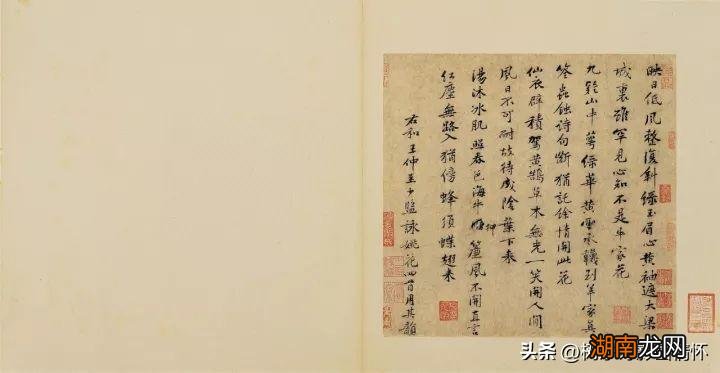 映日低風整復斜綠玉眉心黃袖遮大梁
城裏雖罕見心知不是牛家花
九疑山中萼綠華黃雲承襪到羊家真
筌蟲蝕詩句斷猶記餘情開此花
仙衣襞積駕黃鵠草木無光一笑開人間
風日不可耐故待成陰葉下來
湯沐冰肌照春色海牛押簾風不開直言
紅塵無路入猶傍蜂須蝶翅來
右和王仲至少監詠姚花四首用其韻
头条 @ 情怀
湖南龙网